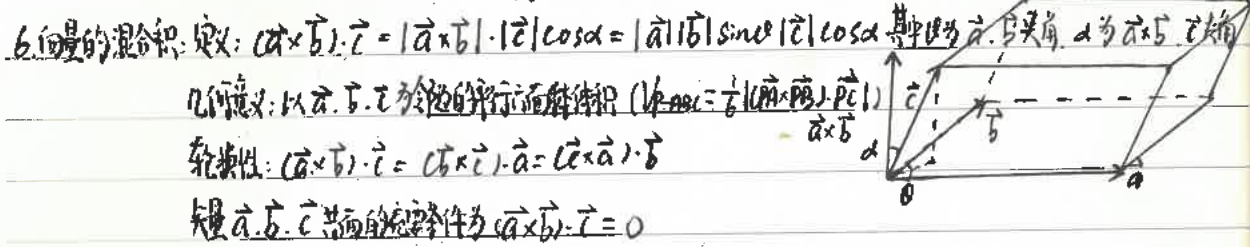 6.向量的混合积: 定义: (a⃗×b⃗)·c⃗ = |a⃗×b⃗|·|c⃗|cosα = |a⃗||b⃗|sinθ|c⃗|cosα 其中θ为a⃗.b⃗夹角. α为a⃗×b⃗.c⃗夹角
几何意义: 以a⃗.b⃗.c⃗为邻边的平行六面体体积 (V_{P-ABC} = 1/6|(PA⃗×PB⃗)·PC⃗|)
轮换性: (a⃗×b⃗)·c⃗ = (b⃗×c⃗)·a⃗ = (c⃗×a⃗)·b⃗
矢量a⃗.b⃗.c⃗共面的充要条件为(a⃗×b⃗)·c⃗ = 0
a⃗×b⃗
c⃗
b⃗
α
θ
a